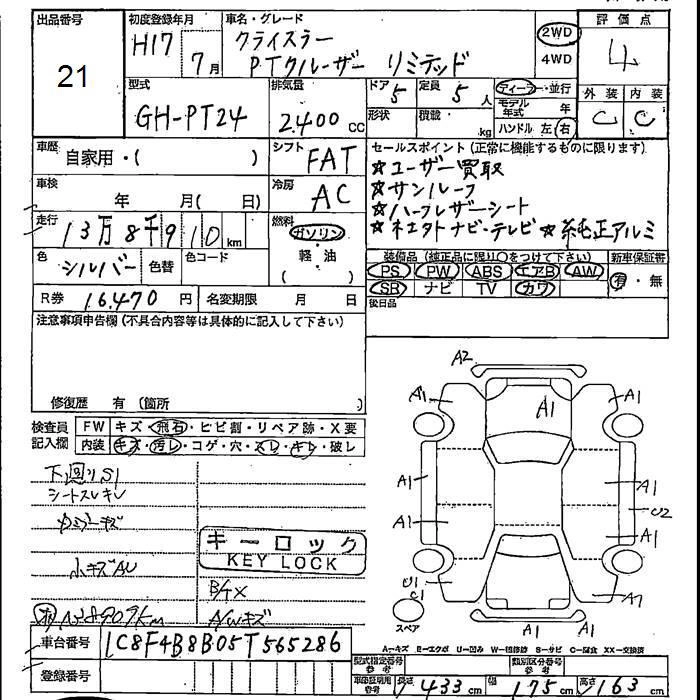 出品番号
21
初度登録年月
H17 7月
車名・グレード
クライスラー
PTクルーザー リミテッド
2WD
4WD
評価点
4
型式
GH-PT24
排気量
2,400 CC
ドア 5
定員 5 人
形状
積載 kg
ディーラー・並行
モデル年式 年
ハンドル 左・右
外装 内装
C C
車歴
自家用・( )
シフト
FAT
セールスポイント(正常に機能するものに限ります)
☆ユーザー買取
☆サンルーフ
☆ハーフレザーシート
ナビ・テレビ ☆純正アルミ
車検
年 月( 日)
冷房
AC
走行
13万8千910km
燃料
ガソリン
軽油
( )
色
シルバー
色替
色コード
装備品(純正品に限り○をつけて下さい)
PS PW ABS エアB AW
SR ナビ TV カワ
新車保証書
有・無
R券 16,470円
名変期限 月 日
後日品
注意事項申告欄(不具合内容等は具体的に記入して下さい)
修復歴 有(箇所 )
検査員記入欄
FW キズ・飛石・ヒビ割・リペア跡・X要
内装 キズ・汚レ・コゲ・穴・スレ・キレ・破レ
下回りS1
シートスレキレ
小キズAU
キーロック
KEY LOCK
A/Wキズ
A2
A1 A1 A1
A1 A1
U2
A1 A1
U1
C1
A1
A1 A1
スペア
A-キズ E-エクボ U-凹み W-補修跡 S-サビ C-腐食 XX-交換済
車台番号 1C8F4B8B05T565286
登録番号
型式指定番号 参考
類別区分番号 参考
車庫証明用 参考
長さ 433 cm 幅 175 cm 高さ 163 cm